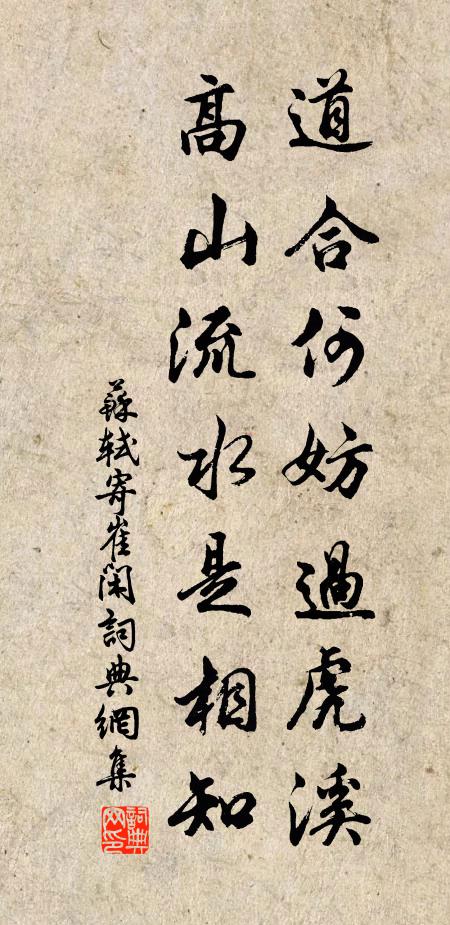 道合何妨過虎溪
高山流水是相知
蘇軾寄崔閑詞典網集
詞典网印